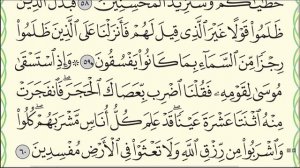 خَطَٰيَٰكُمْ وَسَنَزِيدُ ٱلْمُحْسِنِينَ ٥٨ فَبَدَّلَ ٱلَّذِينَ
ظَلَمُوا۟ قَوْلًا غَيْرَ ٱلَّذِى قِيلَ لَهُمْ فَأَنزَلْنَا عَلَى ٱلَّذِينَ ظَلَمُوا۟
رِجْزًا مِّنَ ٱلسَّمَآءِ بِمَا كَانُوا۟ يَفْسُقُونَ ٥٩ وَإِذِ ٱسْتَسْقَىٰ
مُوسَىٰ لِقَوْمِهِۦ فَقُلْنَا ٱضْرِب بِّعَصَاكَ ٱلْحَجَرَ ۖ فَٱنفَجَرَتْ
مِنْهُ ٱثْنَتَا عَشْرَةَ عَيْنًا ۖ قَدْ عَلِمَ كُلُّ أُنَاسٍ مَّشْرَبَهُمْ ۖ كُلُوا۟
وَٱشْرَبُوا۟ مِن رِّزْقِ ٱللَّهِ وَلَا تَعْثَوْا۟ فِى ٱلْأَرْضِ مُفْسِدِينَ ٦٠